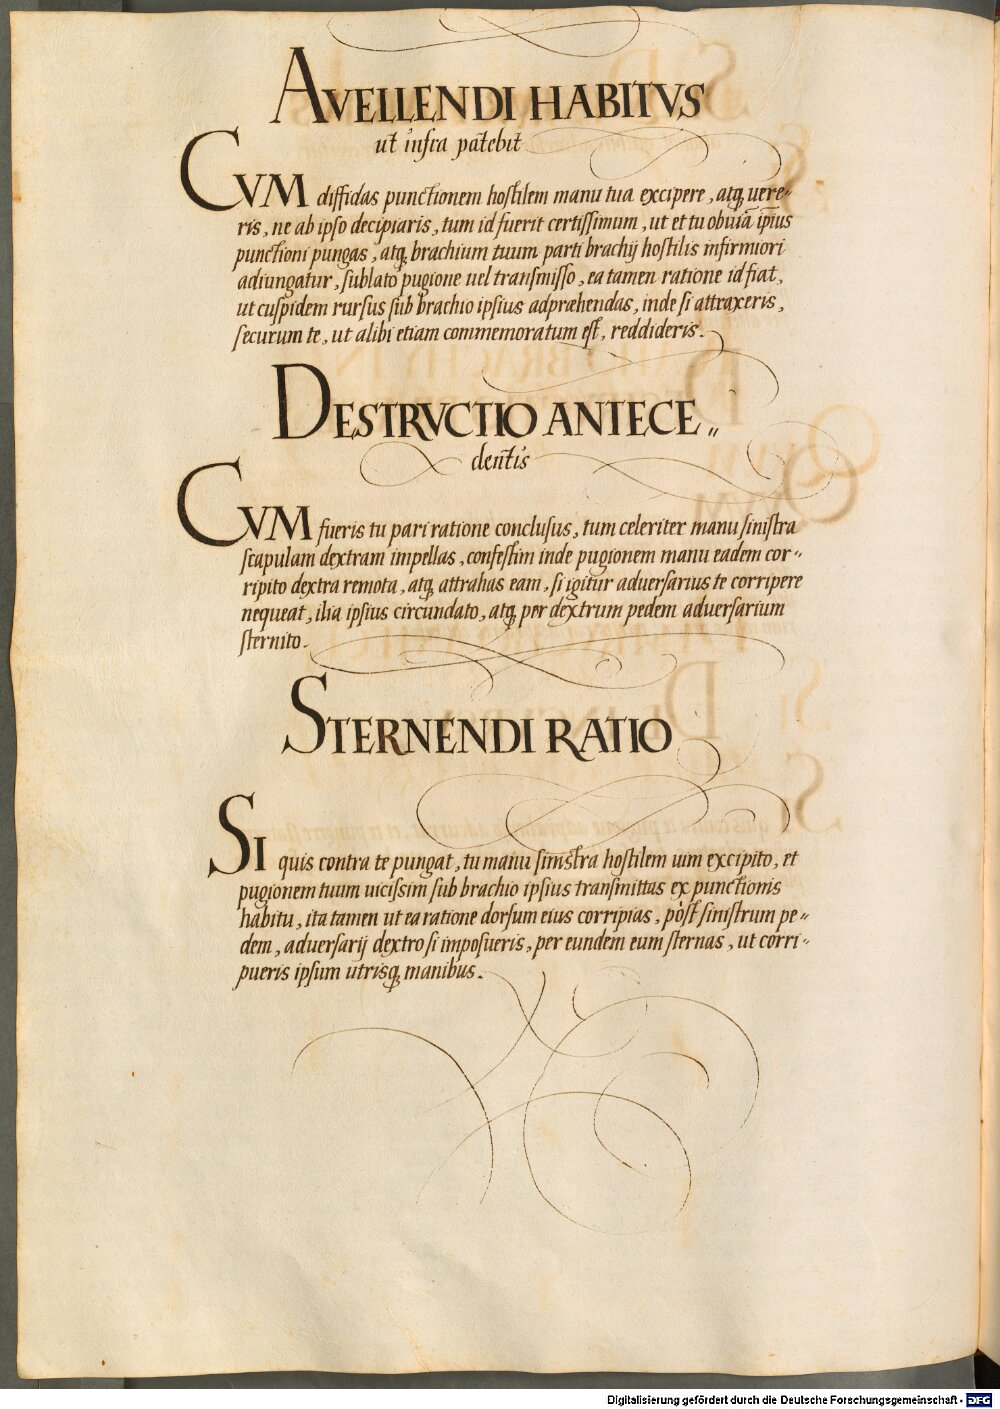 AVELLENDI HABITVS
ut infra patebit
CVM diffidas punctionem hostilem manu tua excipere, atq; uere„
ris, ne ab ipso decipiaris, tum id fuerit certissimum, ut et tu obuiā ipius
punctioni pungas, atq; brachium tuum parti brachij hostilis infirmiori
adiungatur, sublato pugione uel transmisso, ea tamen ratione id fiat,
ut cuspidem rursus sub brachio ipsius adpræhendas, inde si attraxeris,
securum te, ut alibi etiam commemoratum est, reddideris.
DESTRVCTIO ANTECE„
dentis
CVM fueris tu pari ratione conclusus, tum celeriter manu sinistra
scapulam dextram impellas, confestim inde pugionem manu eadem cor„
ripito dextra remota, atq; attrahas eam, si igitur aduersarius te corripere
nequeat, ilia ipsius circundato, atq; per dextrum pedem aduersarium
sternito.
STERNENDI RATIO
SI quis contra te pungat, tu manu sinistra hostilem uim excipito, et
pugionem tuum uicissim sub brachio ipsius transmittas ex punctionis
habitu, ita tamen ut ea ratione dorsum eius corripias, pòst sinistrum pe„
dem, aduersarij dextro si imposueris, per eundem eum sternas, ut corri„
pueris ipsum utrisq; manibus.
Digitalisierung gefördert durch die Deutsche Forschungsgemeinschaft - DFG